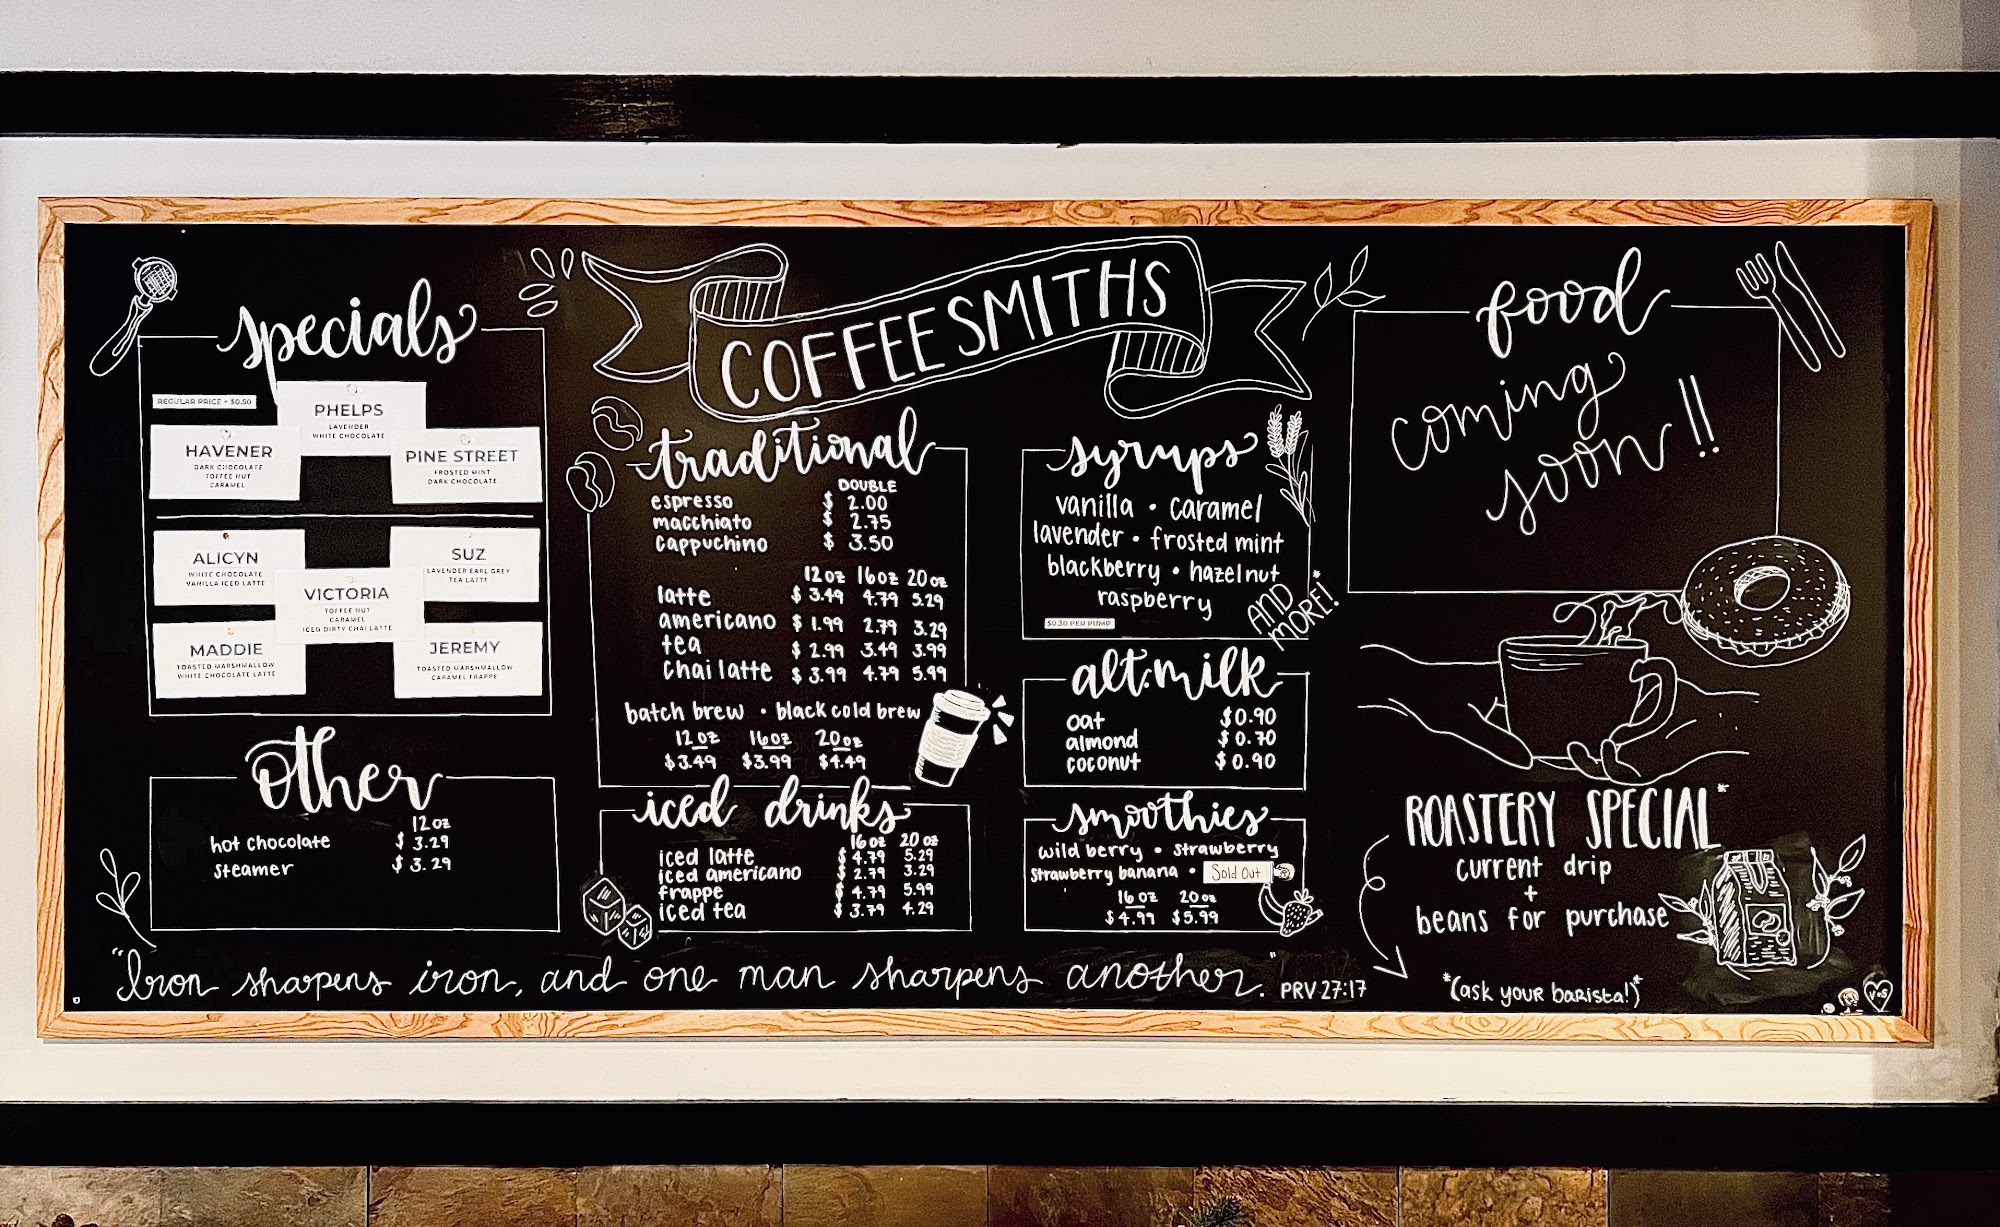 COFFEE SMITHS
specials
REGULAR PRICE + $0.50
PHELPS
LAVENDER
WHITE CHOCOLATE
HAVENER
DARK CHOCOLATE
TOFFEE NUT
CARAMEL
PINE STREET
FROSTED MINT
DARK CHOCOLATE
ALICYN
WHITE CHOCOLATE
VANILLA ICED LATTE
SUZ
LAVENDER EARL GREY
TEA LATTE
VICTORIA
TOFFEE NUT
CARAMEL
ICED DIRTY CHAI LATTE
MADDIE
TOASTED MARSHMALLOW
WHITE CHOCOLATE LATTE
JEREMY
TOASTED MARSHMALLOW
CARAMEL FRAPPE
other
12oz
hot chocolate $ 3.29
steamer $ 3.29
traditional
DOUBLE
espresso $ 2.00
macchiato $ 2.75
cappuchino $ 3.50
12oz 16oz 20oz
latte $ 3.49 4.79 5.29
americano $ 1.99 2.79 3.29
tea $ 2.99 3.49 3.99
chai latte $ 3.99 4.79 5.99
batch brew • black cold brew
12oz 16oz 20oz
$3.49 $3.99 $4.49
iced drinks
16oz 20oz
iced latte $ 4.79 5.29
iced americano $ 2.79 3.29
frappe $ 4.79 5.99
iced tea $ 3.79 4.29
syrups
vanilla • caramel
lavender • frosted mint
blackberry • hazelnut
raspberry
AND MORE!*
$0.30 PER PUMP
alt. milk
oat $0.90
almond $0.70
coconut $0.90
smoothies
wild berry • strawberry
strawberry banana • Sold Out
16oz 20oz
$4.99 $5.99
food
coming
soon!!
ROASTERY SPECIAL*
current drip
+
beans for purchase
*(ask your barista!)*
"Iron sharpens iron, and one man sharpens another." PRV 27:17